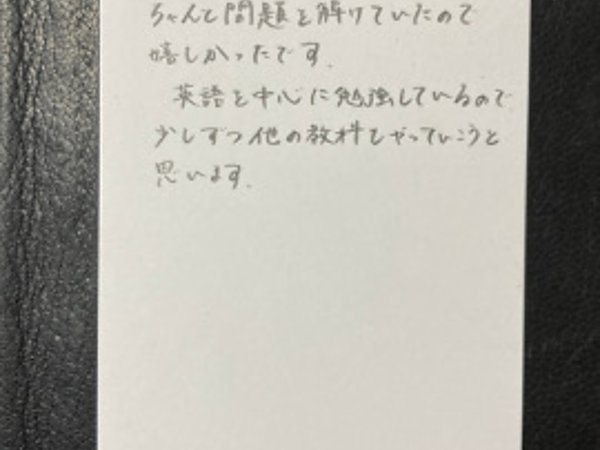 ちゃんと問題を解けていたので
嬉しかったです。
英語を中心に勉強しているので
少しずつ他の教科もやっていこうと
思います。